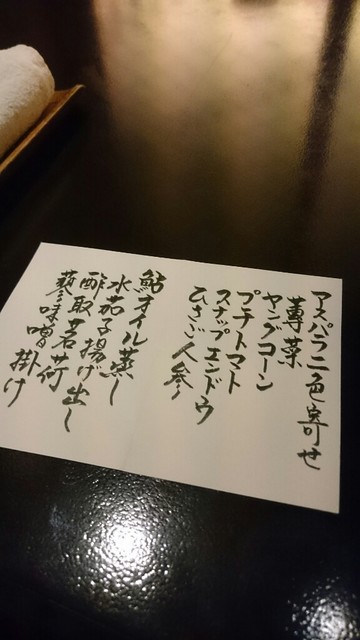 アスパラ二色寄せ
蓴菜
ヤングコーン
プチトマト
スナップエンドウ
ひさご人参
鮎オイル蒸し
水茄子揚げ出し
酢取茗荷
蓼味噌掛け